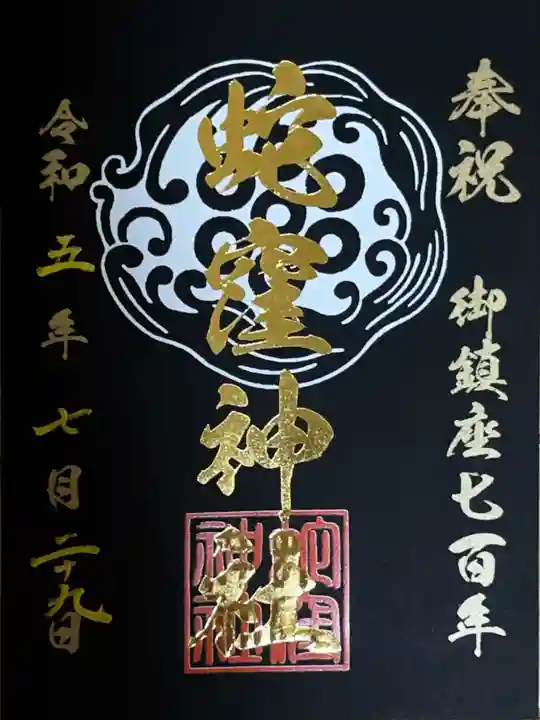 奉祝 御鎮座七百年
蛇窪神社
令和五年七月二十九日
蛇窪神社